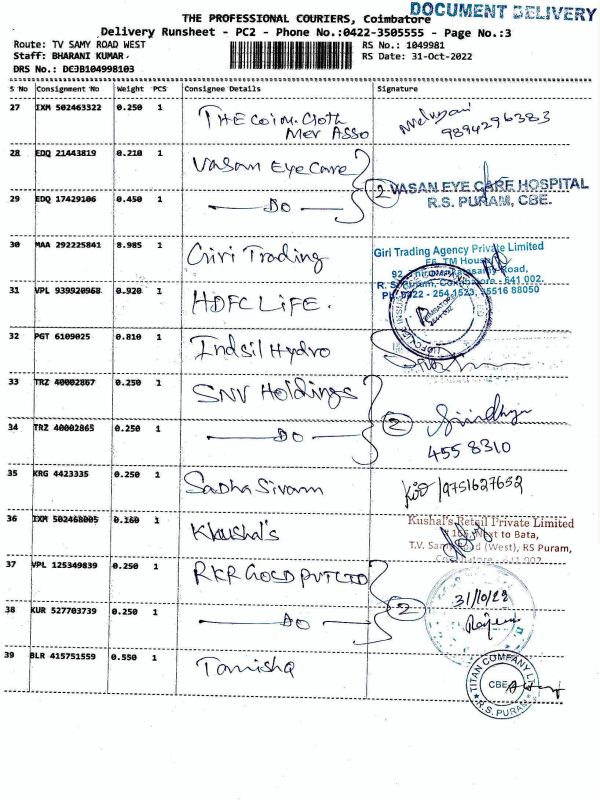 DOCUMENT DELIVERY
THE PROFESSIONAL COURIERS, Coimbatore
Delivery Runsheet - PC2 - Phone No.:0422-3505555 - Page No.:3
Route: TV SAMY ROAD WEST
RS No.: 1049981
Staff: BHARANI KUMAR.
RS Date: 31-Oct-2022
DRS No.: DCJB104998103
S No Consignment No Weight PCS Consignee Details Signature
27 IXM 502463322 0.250 1 THE Coim. Cloth
Mer Asso
9894296383
28 EDQ 21443819 0.210 1 Vasan Eye Care
2 VASAN EYE CARE HOSPITAL
R.S. PURAM, CBE.
29 EDQ 17429106 0.450 1 DO
30 MAA 292225841 8.985 1 Giri Trading
Giri Trading Agency Private Limited
31 VPL 939920968 0.920 1 HDFC LIFE.
32 PGT 6109025 0.810 1 Indsil Hydro
33 TRZ 40002867 0.250 1 SNV Holdings
2
34 TRZ 40002865 0.250 1 DO
455 8310
35 KRG 4423335 0.250 1 SadhaSivam
9751627652
36 IXM 502468005 0.160 1 Khushal's
Kushal's Retail Private Limited
Next to Bata,
T.V. Samy Road (West), RS Puram,
37 VPL 125349839 0.250 1 RKR GOLD PVT LTD
2
31/10/22
38 KUR 527703739 0.250 1 DO
39 BLR 415751559 0.550 1 Tanishq
TITAN COMPANY LTD
CBE
R.S. PURAM